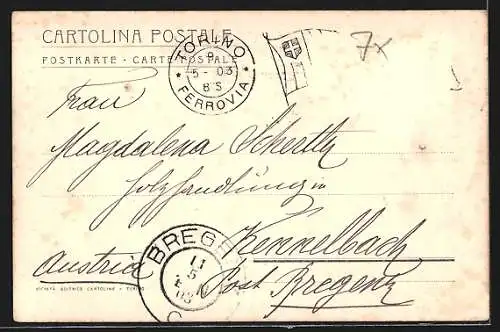 CARTOLINA POSTALE
POSTKARTE - CARTE POSTALE
TORINO
9
5 - 03
8 S
* FERROVIA *
7x
Frau
Magdalena Schertler
Holzhandlung in
Kennelbach
Austria Post Bregenz
BREGE
11
5
03